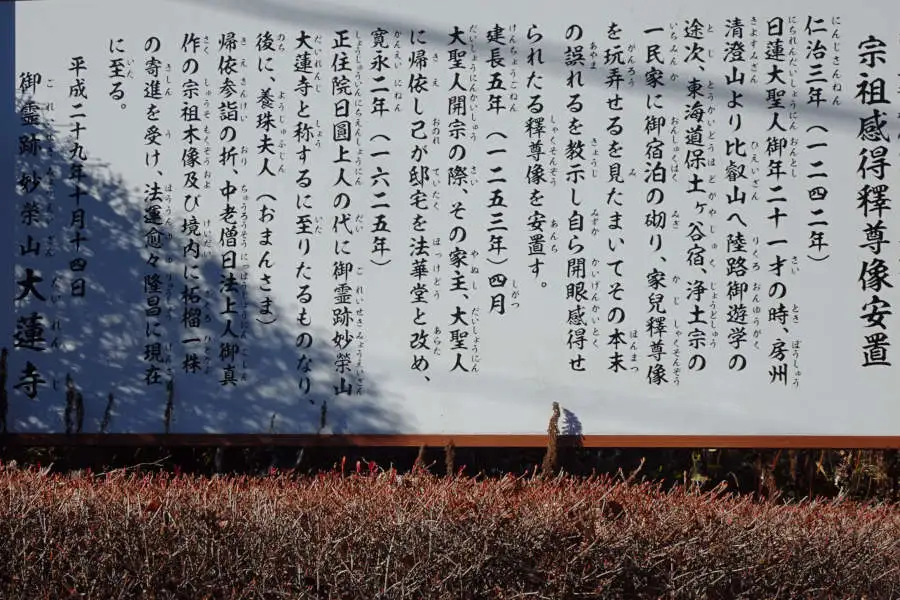 宗祖感得釋尊像安置
仁治三年(一二四二年)
日蓮大聖人御年二十一才の時、房州
清澄山より比叡山へ陸路御遊学の
途次、東海道保土ヶ谷宿、浄土宗の
一民家に御宿泊の砌り、家兒釋尊像
を玩弄せるを見たまいてその本末
の誤れるを教示し自ら開眼感得せ
られたる釋尊像を安置す。
建長五年(一二五三年)四月
大聖人開宗の際、その家主、大聖人
に帰依し己が邸宅を法華堂と改め、
寛永二年(一六二五年)
正住院日圓上人の代に御霊跡妙榮山
大蓮寺と称するに至りたるものなり、
後に、養珠夫人(おまんさま)
帰依参詣の折、中老僧日法上人御真
作の宗祖木像及び境内に柘榴一株
の寄進を受け、法運愈々隆昌に現在
に至る。
平成二十九年十月十四日
御霊跡妙榮山大蓮寺